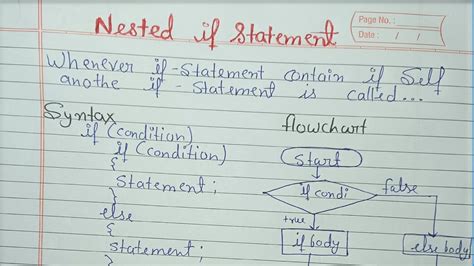 Nested if Statement
Page No. :
Date : / /
Whenever if-Statement Contain if Self
anothe if - Statement is called...
Syntax
if (condition)
if (condition)
{
Statement ;
}
else
{
Statement ;
}
flowchart
Start
if condi
false
true
if body
else body